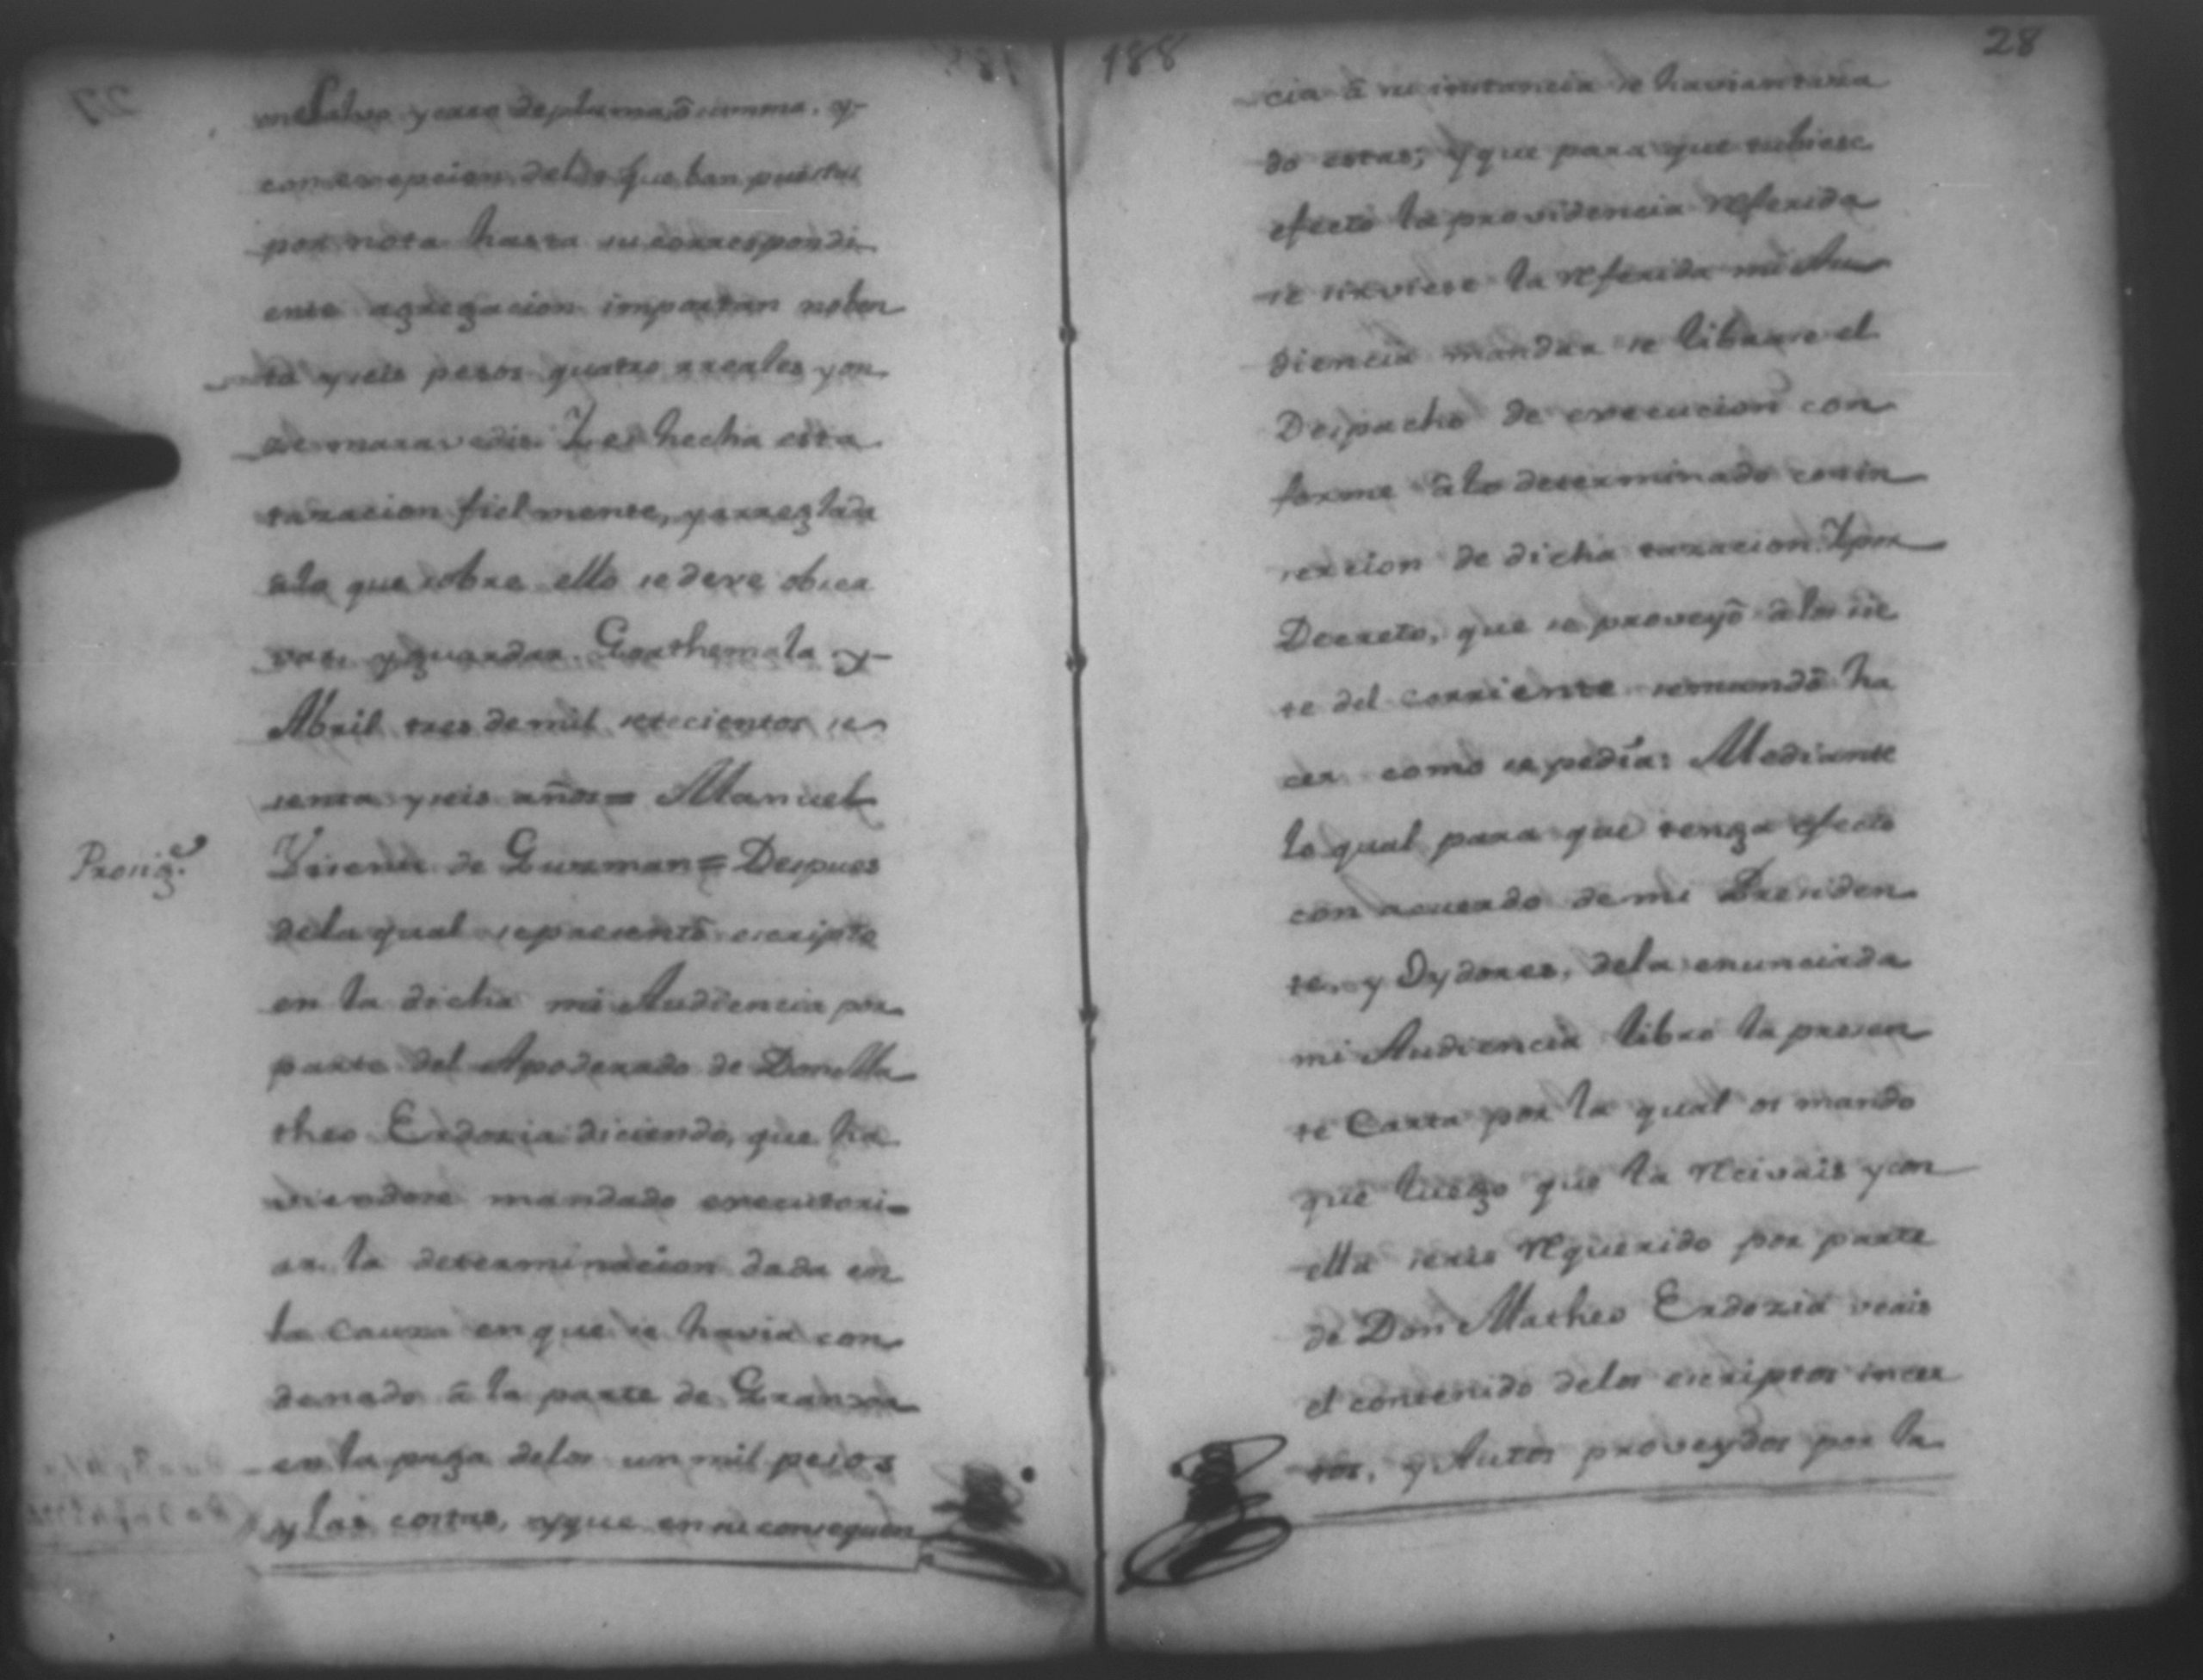 salvo yerro de pluma, ô summa. y
con excepcion delos que ban puestas
por nota hasta su correspondi
ente agregacion importan noben
ta y seis pesos quatro rreales y on
ze maravedis. Y es hecha esta
tazacion fielmente, y arreglada
alo que sobre ello se deve obser
var, y guardar. Goathemala y
Abril tres de mil setecientos se
senta y seis años = Manuel
Prosig.e
Vicente de Guzman = Despues
dela qual se presentô escripto
en la dicha mi Audiencia por
parte del Apoderado de Don Ma
theo Erdozia diciendo, que ha
viendose mandado executori-
ar la determinacion dada en
la Causa en que se havia con
denado â la parte de
en la paga delos un mil pesos
y las costas, y que en su consequen
188
28
cia â su instancia se havian taza
do estas; y que para que tubiese
efecto la providencia referida
se sirviese la referida mi Au
diencia mandar se librase el
Despacho de execucion con
forme âlo determinado con in
sercion de dicha tazacion. Y por
Decreto, que se proveyô âlos sie
te del corriente semandô ha
cer como se pedía: Mediante
lo qual para que tenga efecto
con acuerdo de mi Presiden
te, y Oydores, dela enunciada
mi Audiencia libro la presen
te Carta por la qual os mando
que luego que la recivais y con
ella seais requerido por parte
de Don Matheo Erdozia veais
el contenido delos escriptos incer
tos, y Autos proveydos por la